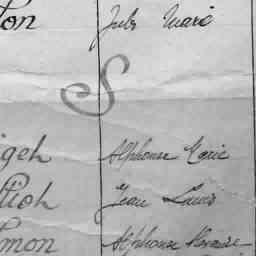 ton Jules Marie
S
igeh Alphonse Marie
tioh Jean Louis
mon Alphonse